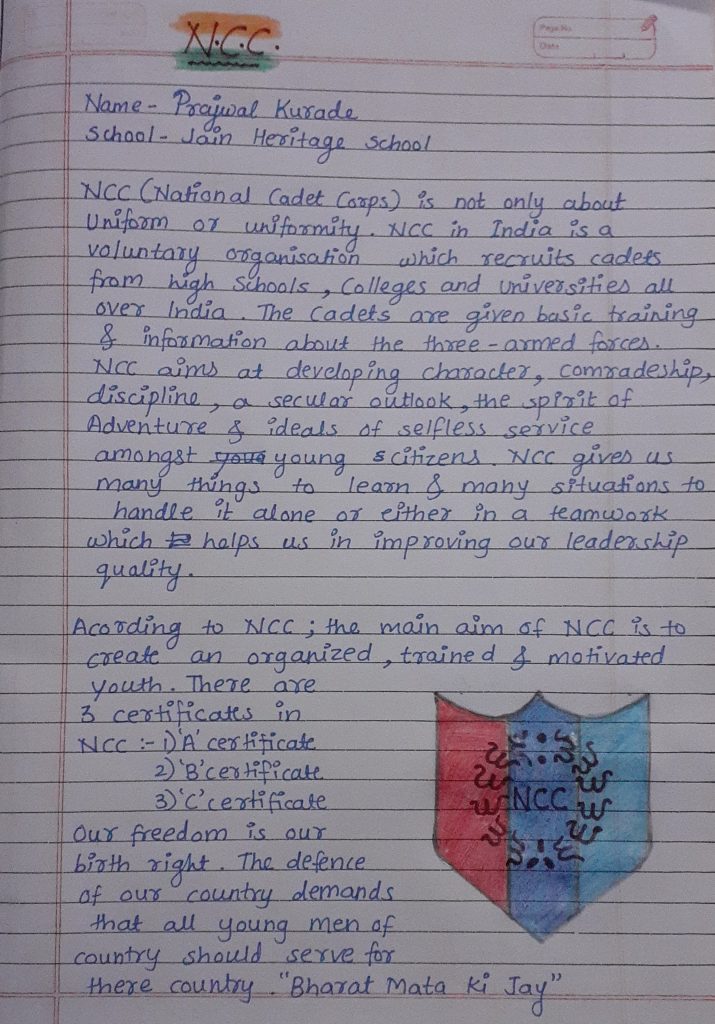 N.C.C.
Page No.
Date
Name - Prajwal Kurade
School - Jain Heritage School
NCC (National Cadet Corps) is not only about
Uniform or uniformity. NCC in India is a
voluntary organisation which recruits cadets
from high Schools, Colleges and Universities all
over India. The Cadets are given basic training
& information about the three-armed forces.
NCC aims at developing character, comradeship,
discipline, a secular outlook, the spirit of
Adventure & ideals of selfless service
amongst young citizens. NCC gives us
many things to learn & many situations to
handle it alone or either in a teamwork
which helps us in improving our leadership
quality.
Acording to NCC ; the main aim of NCC is to
create an organized, trained & motivated
youth. There are
3 certificates in
NCC :- 1) 'A' certificate
2) 'B' certificate
3) 'C' certificate
NCC
Our freedom is our
birth right. The defence
of our country demands
that all young men of
country should serve for
there country. "Bharat Mata Ki Jay"